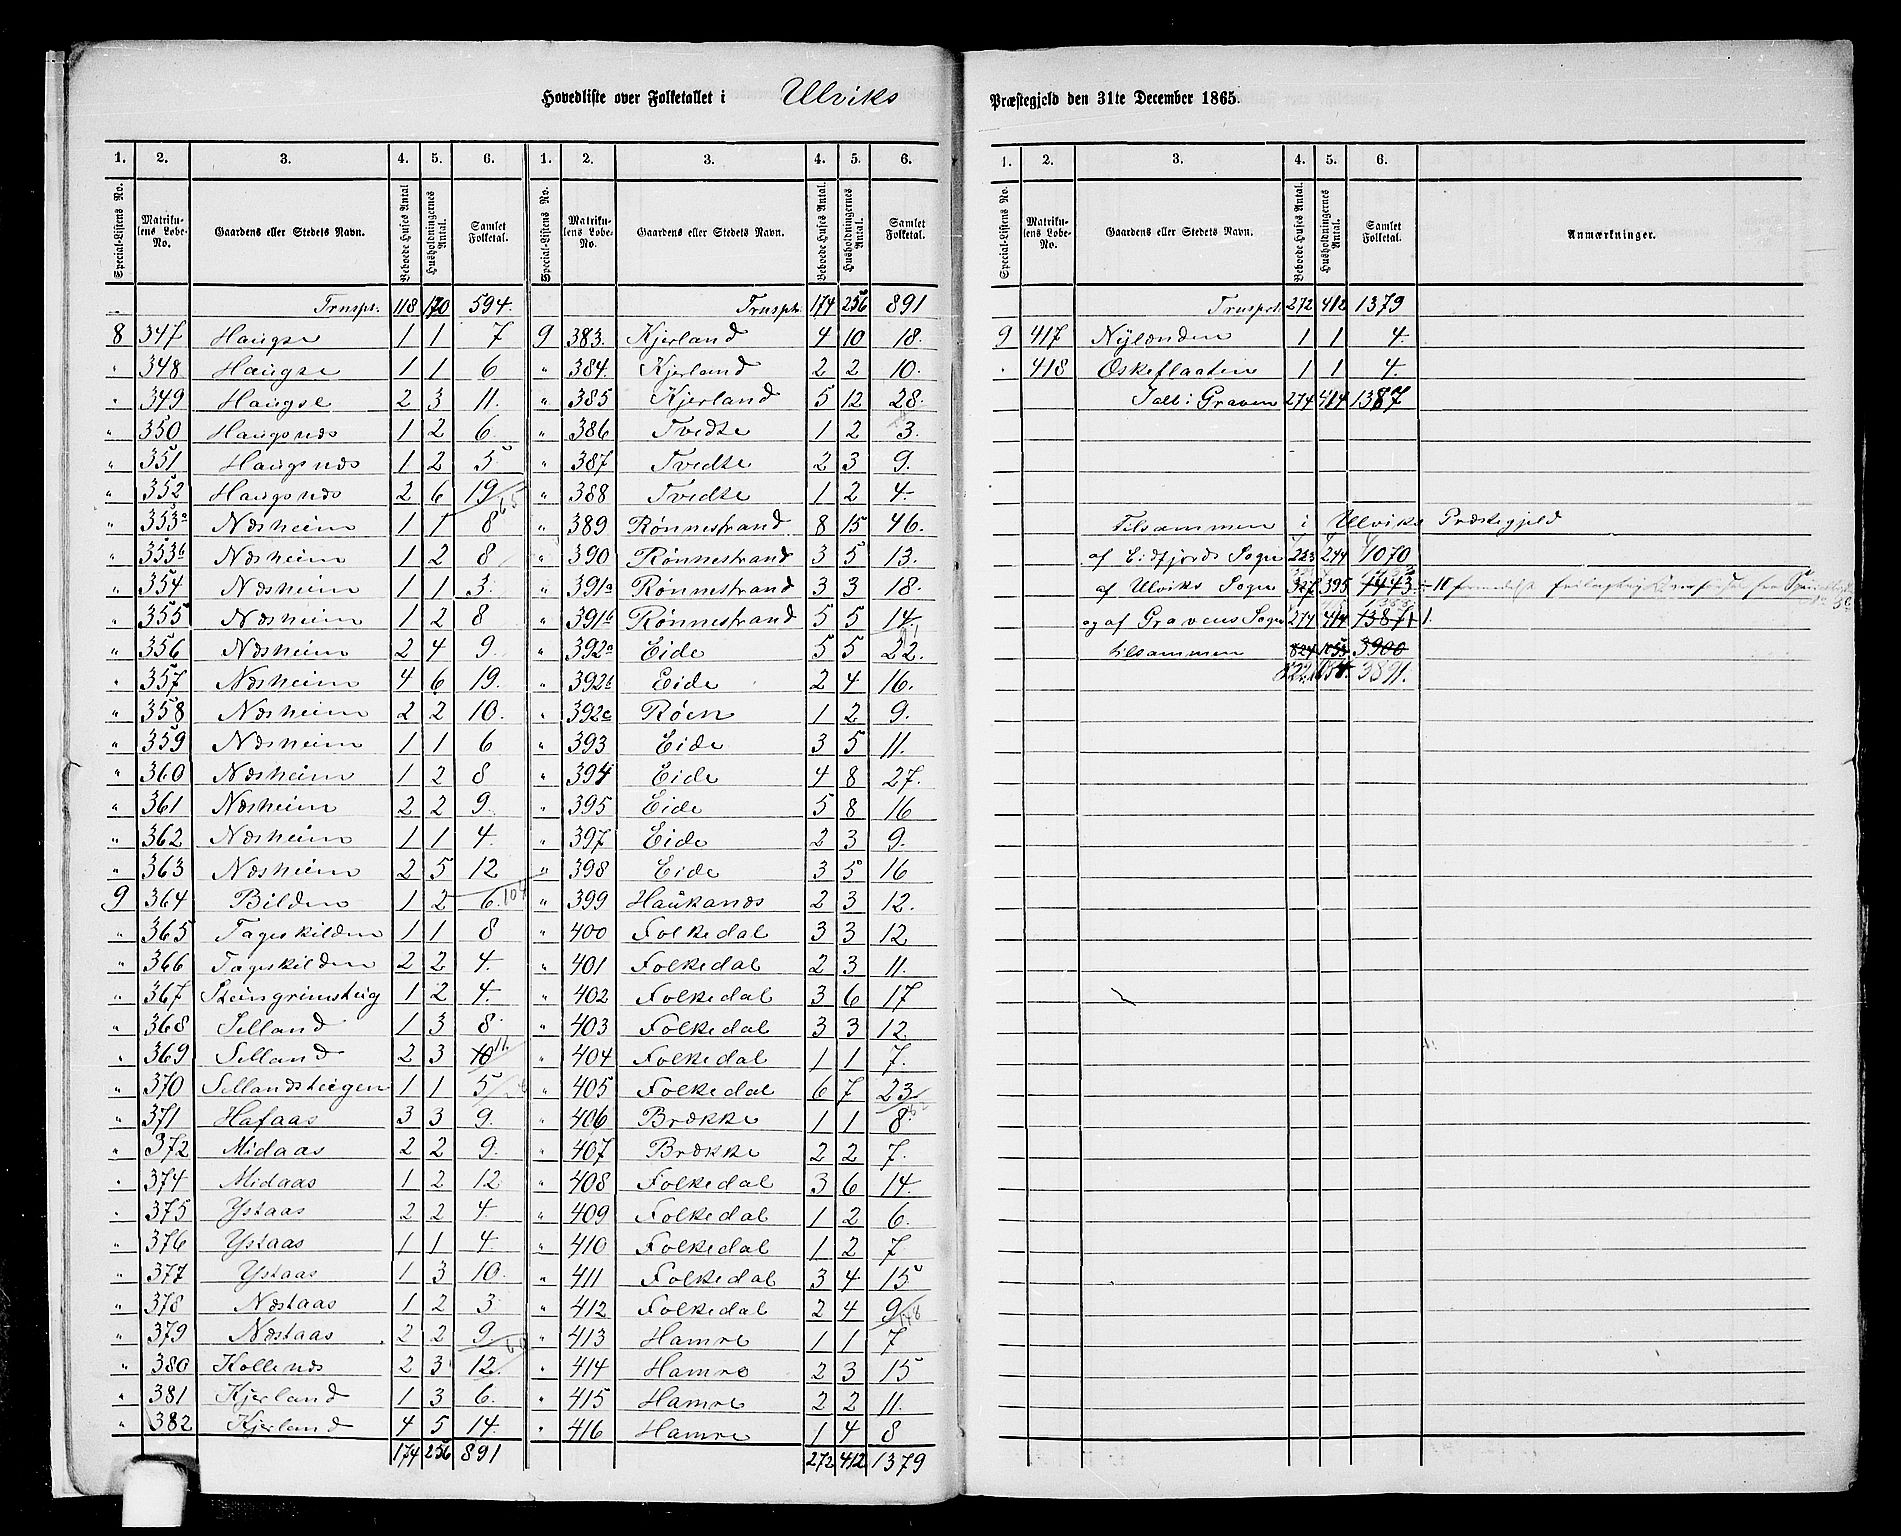 Hovedliste over Folketallet i Ulviks Præstegjeld den 31te December 1865.
1. 2. 3. 4. 5. 6. 1. 2. 3. 4. 5. 6.
Special-Listens No. Matrikulens Løbe-No. Gaardens eller Stedets Navn. Beboede Huses Antal Husholdningernes Antal. Samlet Folketal. Special-Listens No. Matrikulens Løbe-No. Gaardens eller Stedets Navn. Beboede Huses Antal. Husholdningernes Antal. Samlet Folketal.
Trnspt. 118 170 594.
8 347 Haugse 1 1 7
" 348 Haugse 1 1 6
" 349 Haugse 2 3 11.
" 350 Haugsnæs 1 2 6.
" 351 Haugsnæs 1 2 5.
" 352 Haugsnæs 2 6 19 65
" 353a Næsheim 1 1 8
" 353b Næsheim 1 2 8
" 354 Næsheim 1 1 3.
" 355 Næsheim 1 2 8
" 356 Næsheim 2 4 9.
" 357 Næsheim 4 6 19.
" 358 Næsheim 2 2 10.
" 359 Næsheim 1 1 6
" 360 Næsheim 1 2 8
" 361 Næsheim 2 2 9.
" 362 Næsheim 1 1 4.
" 363 Næsheim 2 5 12 104
9 364 Bilden 1 2 6.
" 365 Tageskilden 1 1 8
" 366 Tageskilden 2 2 4.
" 367 Steingrimsteig 1 2 4.
" 368 Selland 1 3 8.
" 369 Selland 2 3 10 11.
" 370 Sellandsteigen 1 1 5
" 371 Hafaas 3 3 9.
" 372 Midaas 2 2 9.
" 374 Midaas 1 2 12.
" 375 Ystaas 2 2 4.
" 376 Ystaas 1 1 4.
" 377 Ystaas 1 3 10.
" 378 Næstaas 1 2 3
" 379 Næstaas 2 2 9.
" 380 Kollenæs 2 3 12.
" 381 Kjerland 1 3 6.
" 382 Kjerland 4 5 14.
174 256 891
Trnspt. 174 256 891
9 383. Kjerland 4 10 18.
" 384. Kjerland 2 2 10.
" 385 Kjerland 5 12 28.
" 386 Tvedte 1 2 3.
" 387 Tvedte 2 3 9.
" 388 Tvedte 1 2 4.
" 389 Rønnestrand 8 15 46.
" 390 Rønnestrand 3 5 13.
" 391a Rønnestrand 3 3 18.
" 391b Rønnestrand 5 5 14.
" 392a Eide 5 5 22.
" 392b Eide 2 4 16.
" 392c Røen 1 2 9.
" 393 Eide 3 5 11.
" 394 Eide 4 8 27.
" 395 Eide 5 8 16
" 397 Eide 2 3 9.
" 398 Eide 3 5 16
" 399 Haukanæs 2 3 12.
" 400 Folkedal 3 3 12
" 401 Folkedal 2 3 11.
" 402 Folkedal 3 6 17
" 403 Folkedal 3 3 12
" 404 Folkedal 1 1 7.
" 405 Folkedal 6 7 23
" 406 Brække 1 1 8.
" 407 Brække 2 2 7.
" 408 Folkedal 3 6 14.
" 409 Folkedal 1 2 6.
" 410 Folkedal 1 2 7
" 411 Folkedal 3 4 15
" 412 Folkedal 2 4 9
" 413 Hamre 1 1 7
" 414 Hamre 2 3 15
" 415 Hamre 2 2 11.
" 416 Hamre 1 4 8
272 412 1379
1. 2. 3. 4. 5. 6.
Special-Listens No. Matrikulens Løbe-No. Gaardens eller Stedets Navn. Beboede Huses Antal. Husholdningernes Antal. Samlet Folketal. Anmærkninger.
Trnspt. 272 412 1379
9 417 Nylænden 1 1 4.
" 418 Oskeflaaten 1 1 4.
Ialt i Graven 274 414 1387
Tilsammen i Ulviks Præstegjeld
af Eidfjords Sogn 223 244 1070
af Ulviks Sogn 327 395 1443
og af Gravens Sogn 274 414 1387
tilsammen 824 1053 3900
822. 3891.